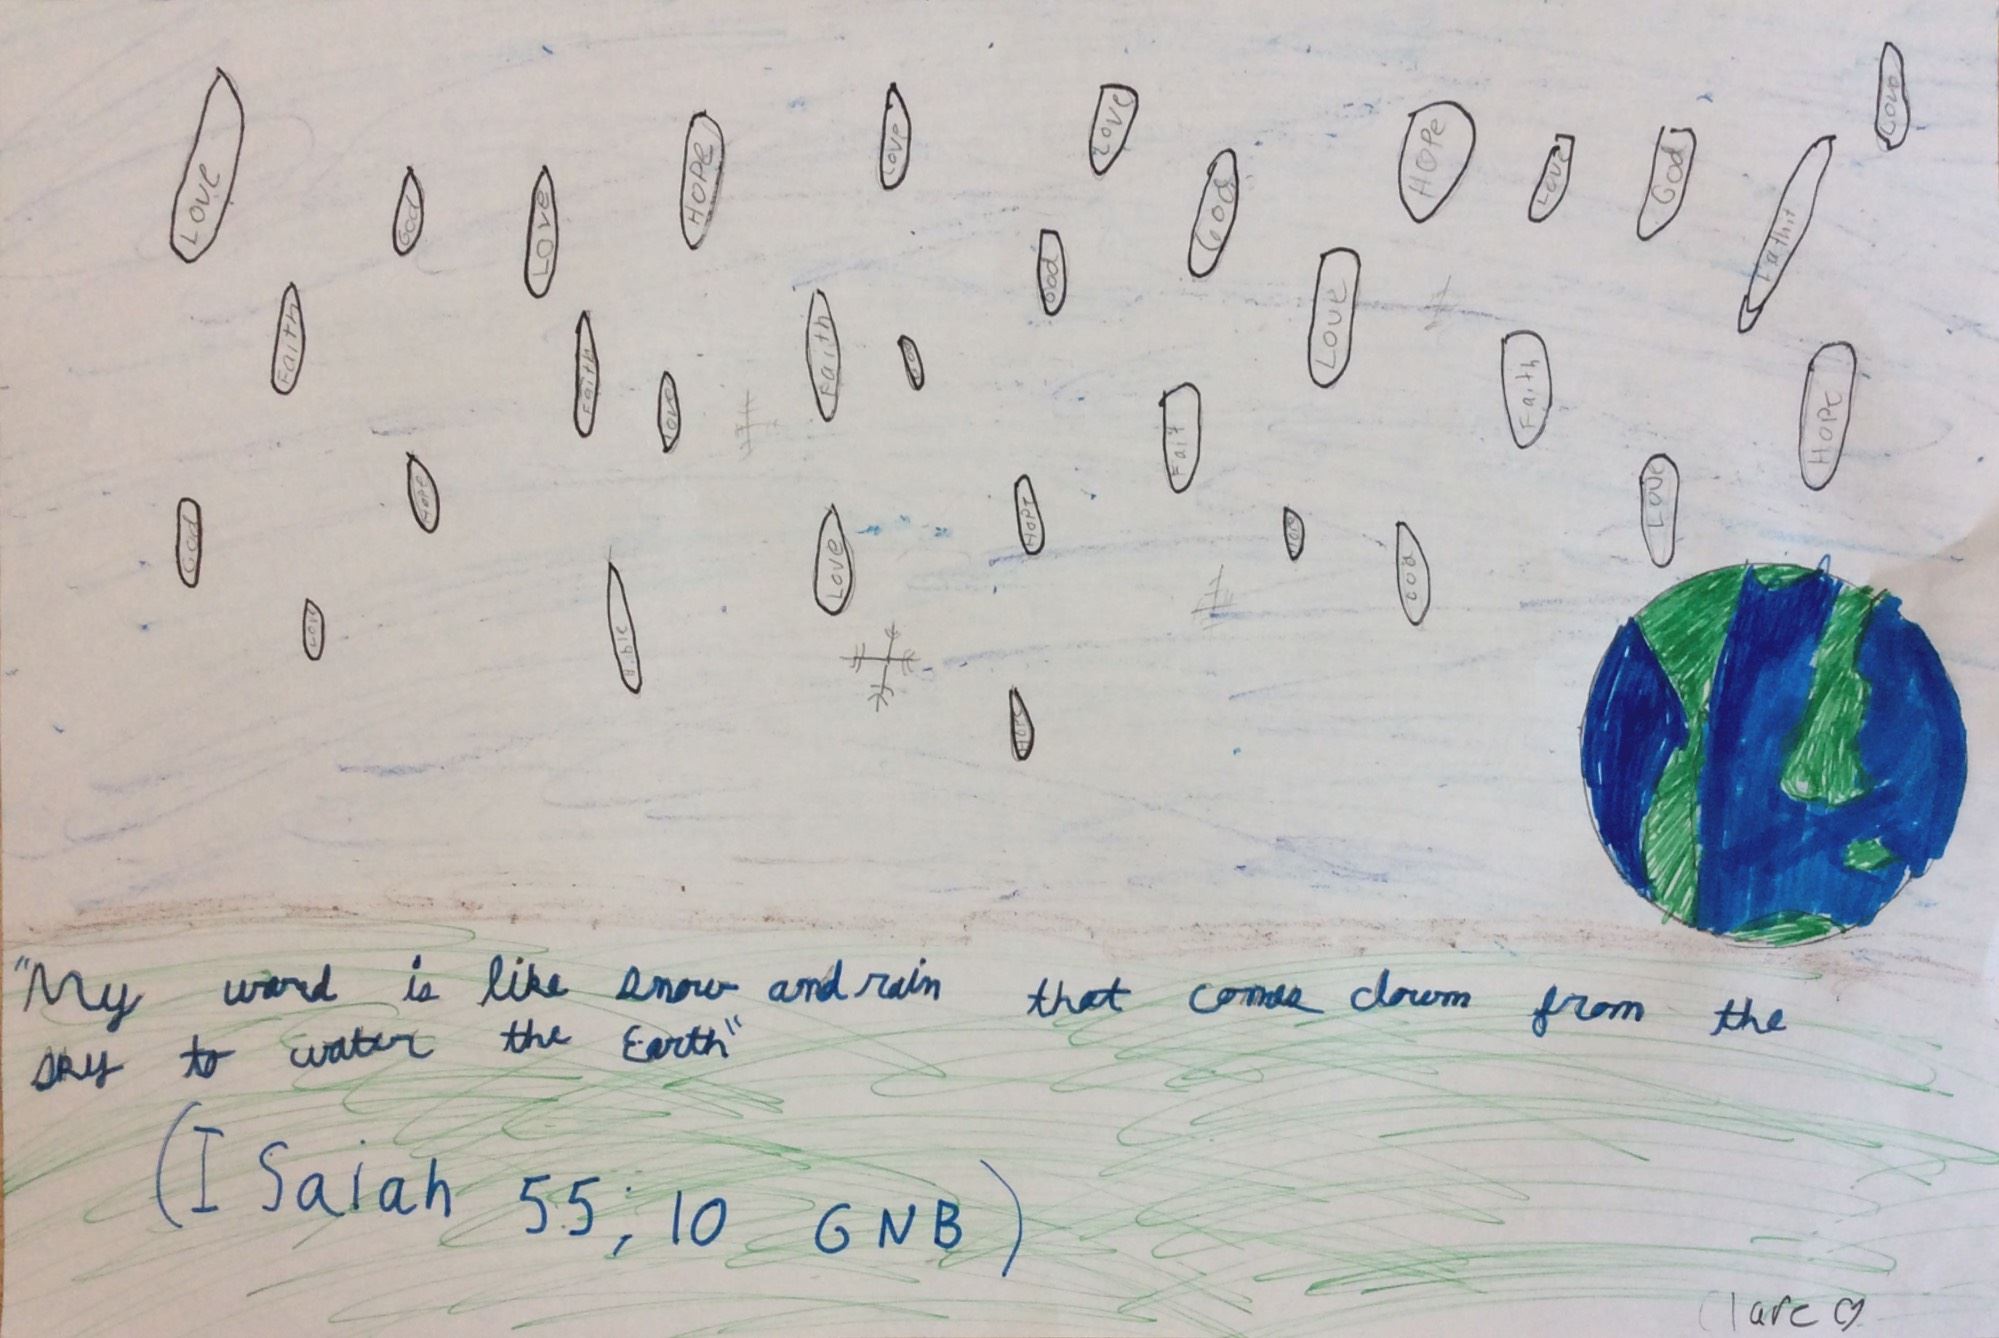 Love
God
Love
HOPE
Love
Love
God
HOPe
Love
God
Faithit
Love
Faith
Faith
Love
Faith
God
Fait
Love
Faith
HOPe
God
Hope
Love
HOPE
God
Love
Love
"My word is like snow and rain that comes down from the
sky to water the Earth"
(I Saiah 55; 10 GNB)
Clare